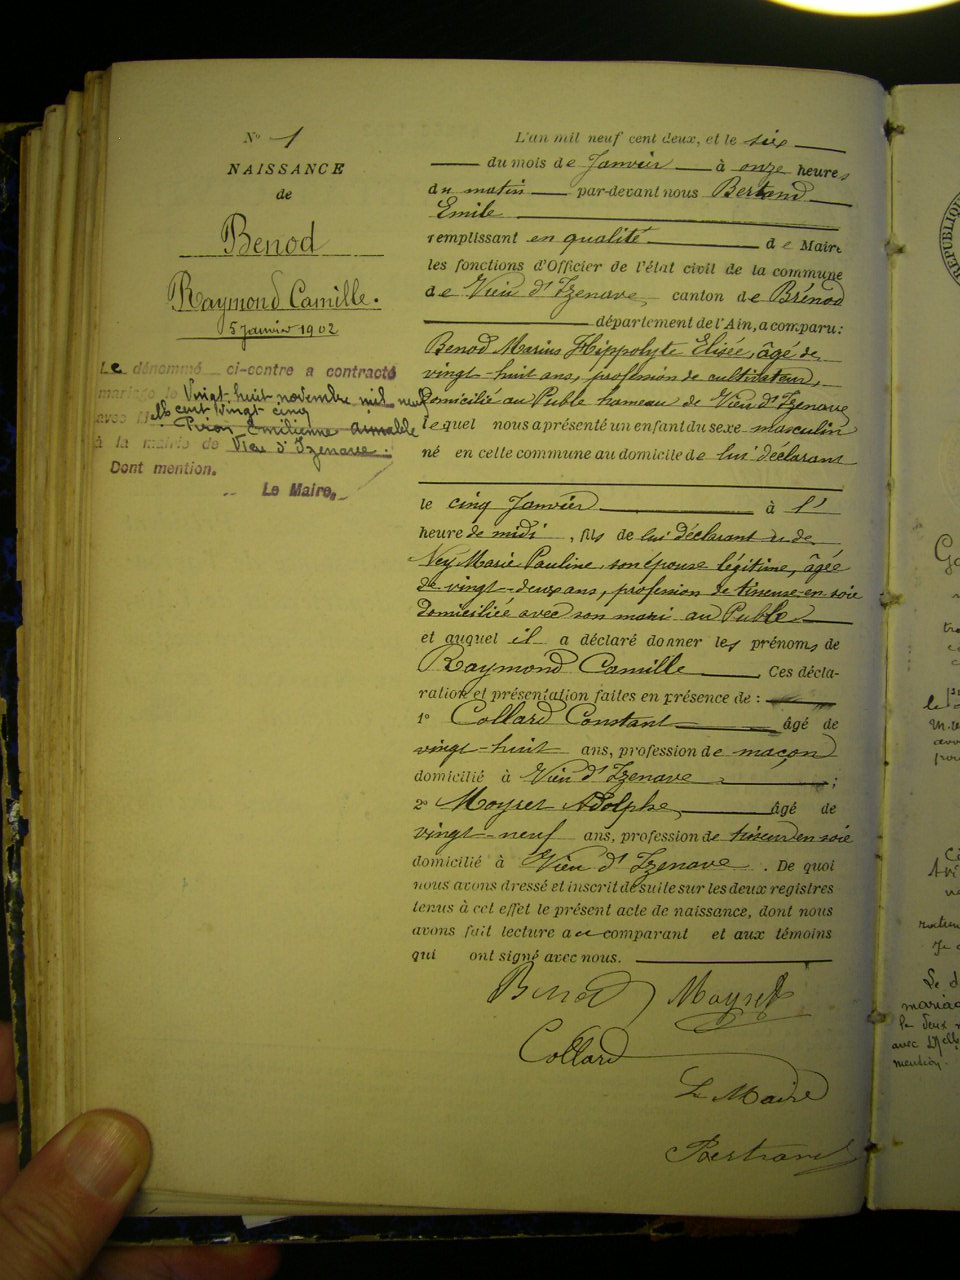 Nº 1
NAISSANCE
de
Benod
Raymond Camille.
5 Janvier 1902
Le dénommé ci-contre a contracté
mariage le Vingt-huit novembre mil neuf
cent vingt cinq
avec Melle Piron Emilienne Aimable
à la mairie de Vieu d'Izenave.
Dont mention.
Le Maire,
L'an mil neuf cent deux, et le six
du mois de Janvier à onze heures
du matin par-devant nous Bertrand
Emile
remplissant en qualité de Maire
les fonctions d'Officier de l'état civil de la commune
de Vieu d'Izenave, canton de Brénod
département de l'Ain, a comparu:
Benod Marius Hippolyte Elisée, âgé de
vingt-huit ans, profession de cultivateur,
domicilié au Puble hameau de Vieu d'Izenave
lequel nous a présenté un enfant du sexe masculin
né en cette commune au domicile de lui déclarant
le cinq Janvier à l'
heure de midi, fils de lui déclarant et de
Ney Marie Pauline, son épouse légitime, âgée
de vingt-deux ans, profession de tisseuse en soie
domiciliée avec son mari au Puble
et auquel il a déclaré donner les prénoms de
Raymond Camille Ces décla-
ration et présentation faites en présence de :
1º Collard Constant âgé de
vingt-huit ans, profession de maçon
domicilié à Vieu d'Izenave ;
2º Moyret Adolphe, âgé de
vingt-neuf ans, profession de tisseur en soie
domicilié à Vieu d'Izenave. De quoi
nous avons dressé et inscrit de suite sur les deux registres
tenus à cet effet le présent acte de naissance, dont nous
avons fait lecture au comparant et aux témoins
qui ont signé avec nous.
Benod Moyret
Collard
Le Maire
Bertrand
REPUBLIQUE
mention.